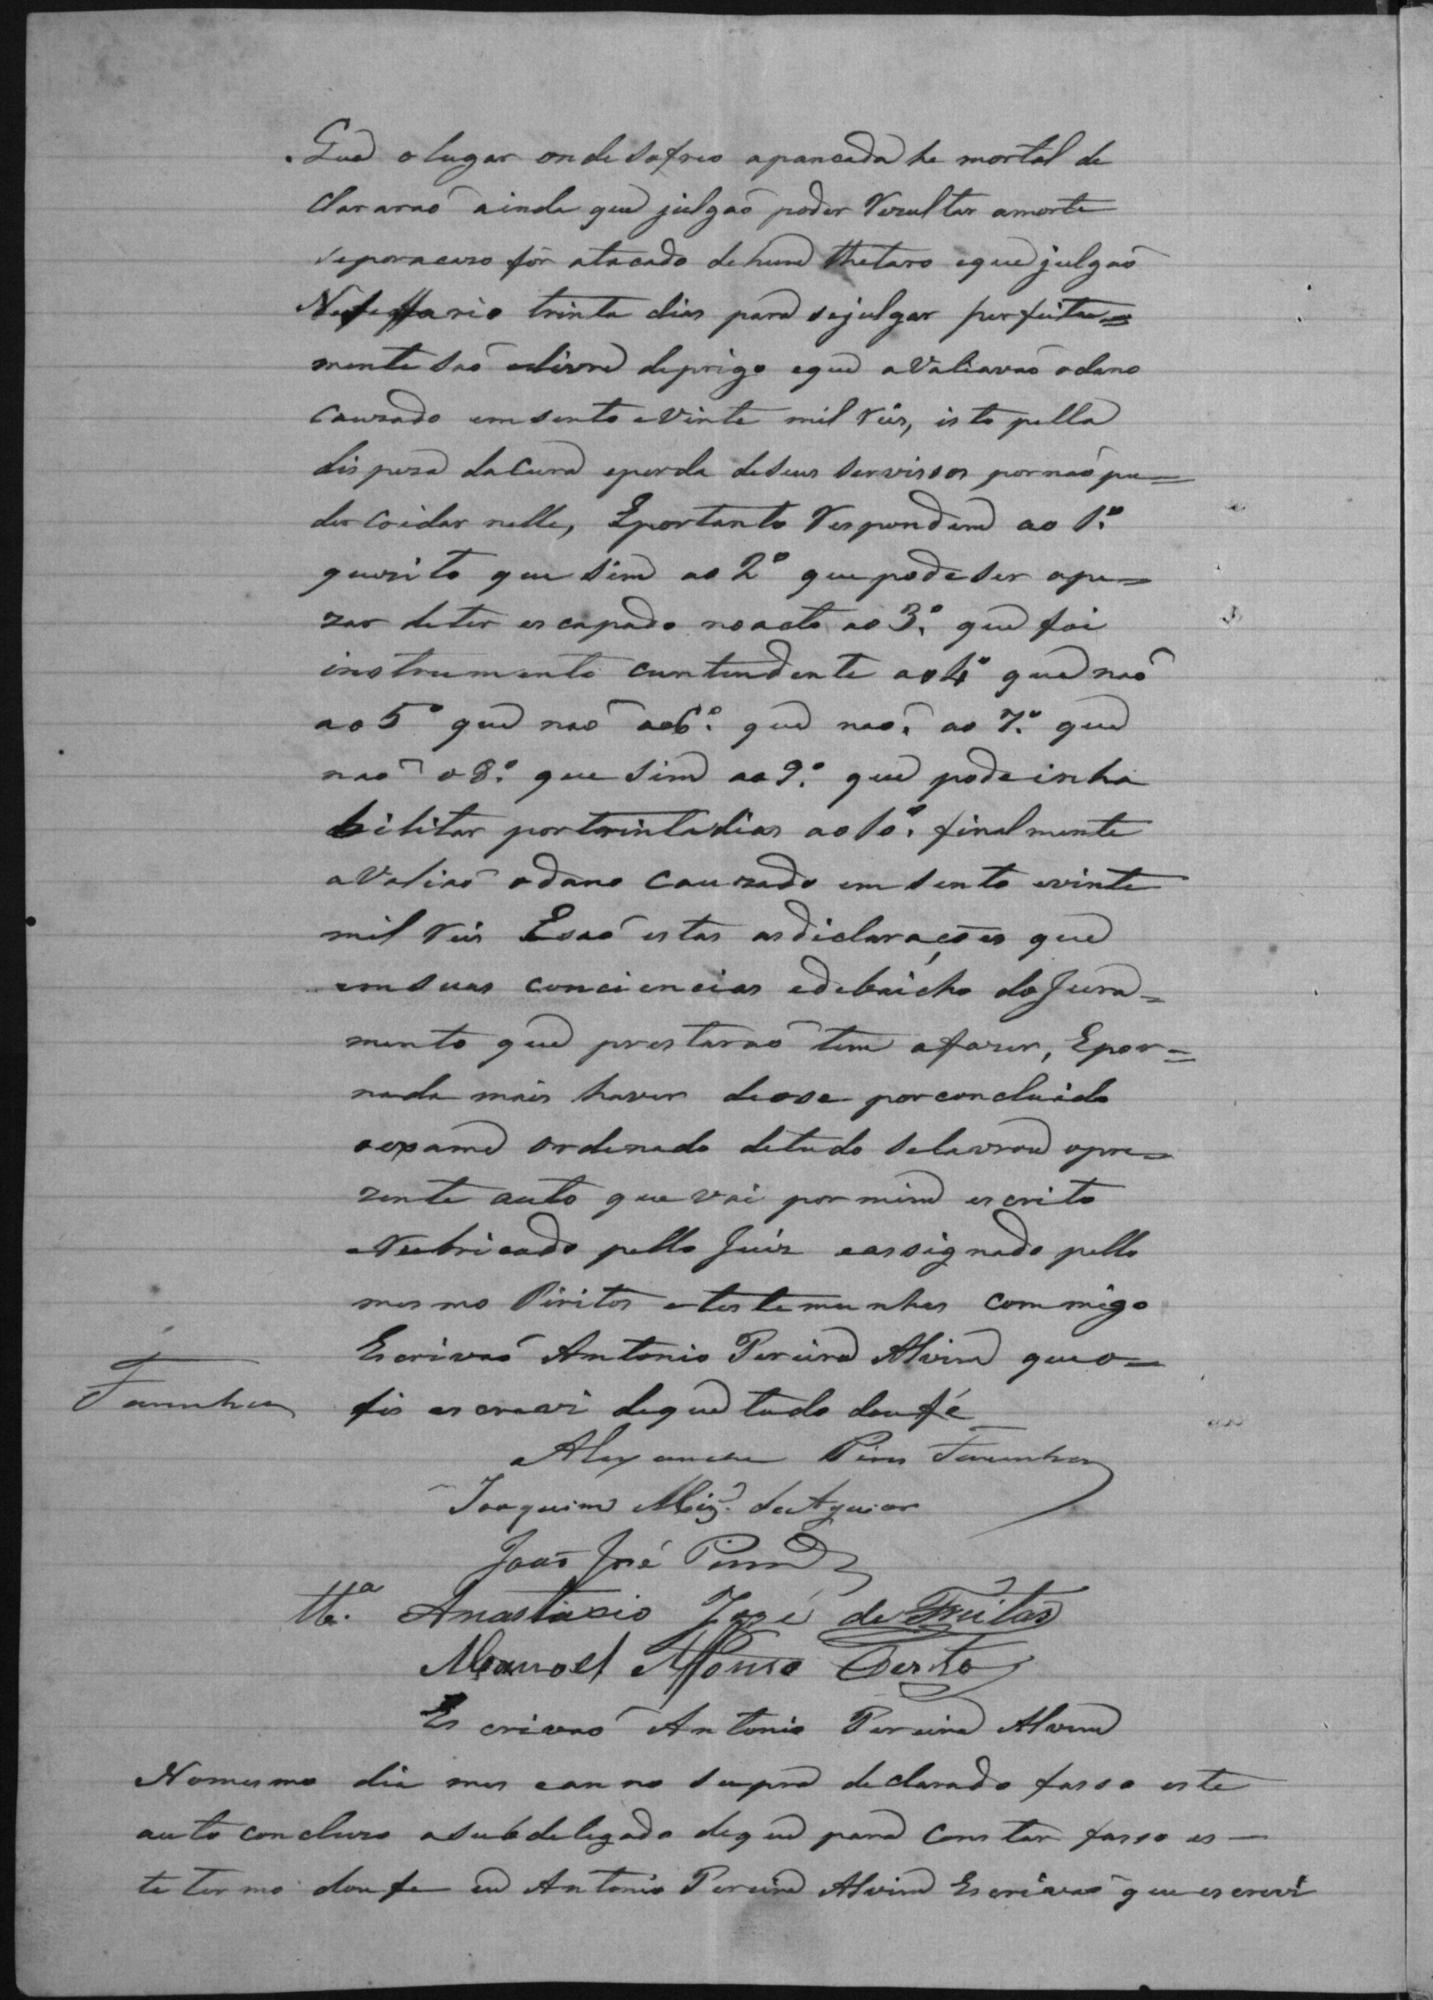 Que o lugar onde sofreo apancada he mortal de
clararaõ ainda que julgaõ poder Rezultar amorte
seporacazo fôr atacado dehum thetano eque julgaõ
Nesessario trinta dias para sejulgar perfeita=
mente saõ elivre deprigo eque aValiavaõ odano
cauzado emsento evinte mil reis, isto pella
dispeza dacura eperda deseus servissos pornaõ pu=
der coidar nelle, Eportanto Respondem ao 1º.
quezito que sim ao 2º que pode ser ape=
zar deter escapado noacto ao 3º. que foi
instrumento cuntundente ao 4º que naõ
ao 5º que naõ ao 6º. que naõ, ao 7º. que
naõ o 8º. que sim ao 9º. que pode inha
bilitar portrintadias ao 10º. finalmente
aValiaõ odano cauzado em sento evinte
mil reis Esaõ estas asdiclarações que
emsuas conciencias edebaicho do Jura=
mento que prestaraõ tem afazer, Epor=
nada mais haver dease porconcluido
oexame ordenado detudo selavrou opre=
zente auto que vai por mim escrito
eRubricado pello Juiz eassignado pello
mesmo Piritos etestemunhas commigo
Escrivaõ Antonio Pereira Alvim queo=
Farinha fis escrevi deque tudo doufé
Alexandre Pires Farinha
Joaquim Miz. de Aguiar
João José Pires
Tta. Anastacio José de Freitas
Manoel Afonso
Escrivaõ Antonio Pereira Alvim
Nomesmo dia mes eanno supra declarado fasso este
auto concluzo asubdelegado deque para constar fasso es=
te termo doufe eu Antonio Pereira Alvim Escrivaõ que escrevi